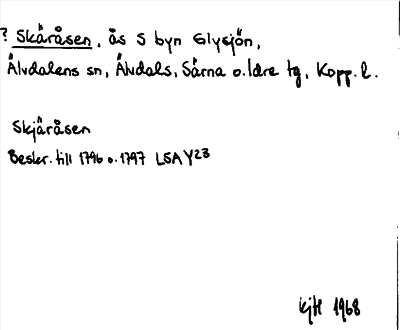 ? Skäråsen, ås S byn Glysjön,
Älvdalens sn, Älvdals, Särna o. Idre tg, Kopp. l.
Skjäråsen
Beskr. till 1796 o. 1797 LSA Y23
1968